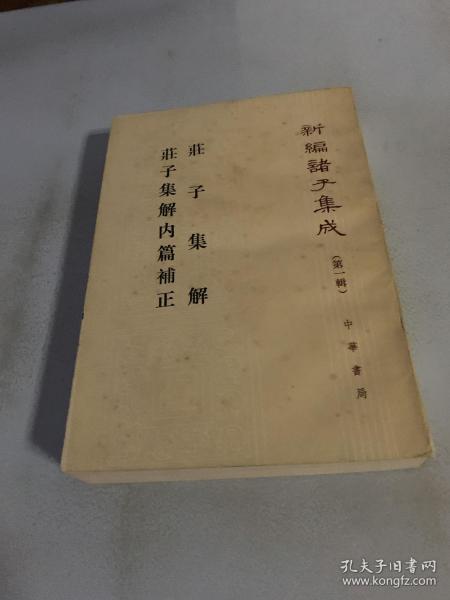 新編諸子集成
(第一輯)
中華書局
莊子集解
莊子集解内篇補正
孔夫子旧書网
www.kongfz.com